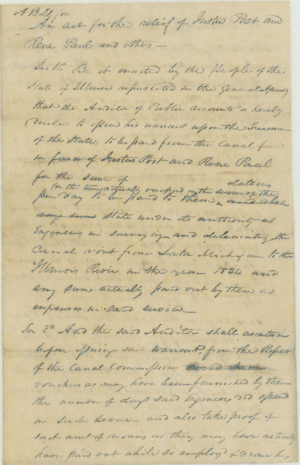 A Bill for
An act for the relief of Justus Post and
Rene Paul and others—
Sec 1st Be it enacted by the People of the
State of Illinois represented in the General Assembly
that the Auditor of Public Accounts is hereby
to issue his warrant upon the Treasurer
of the State, to be paid from the Canal fund
in favor of Justus Post and Rene Paul
for the sum of dollars
for the time actually engaged in the service of the
per day to be paid to them
State under its authority as
Engineers in surveying and delineating the
Canal rout from Lake Michigan to the
Illinois River in the year 1824 and
any sums actually paid out by them as
expenses in said service—
Sec 2d And the said Auditor shall ascertain
before issuing said warrant, from the Report
of the Canal Commissioners
vouchers as may have been furnished by them
the number of days said engineers did spend
in such service and also take proof of
such amt of monies as they may have actually
have paid out while so employed